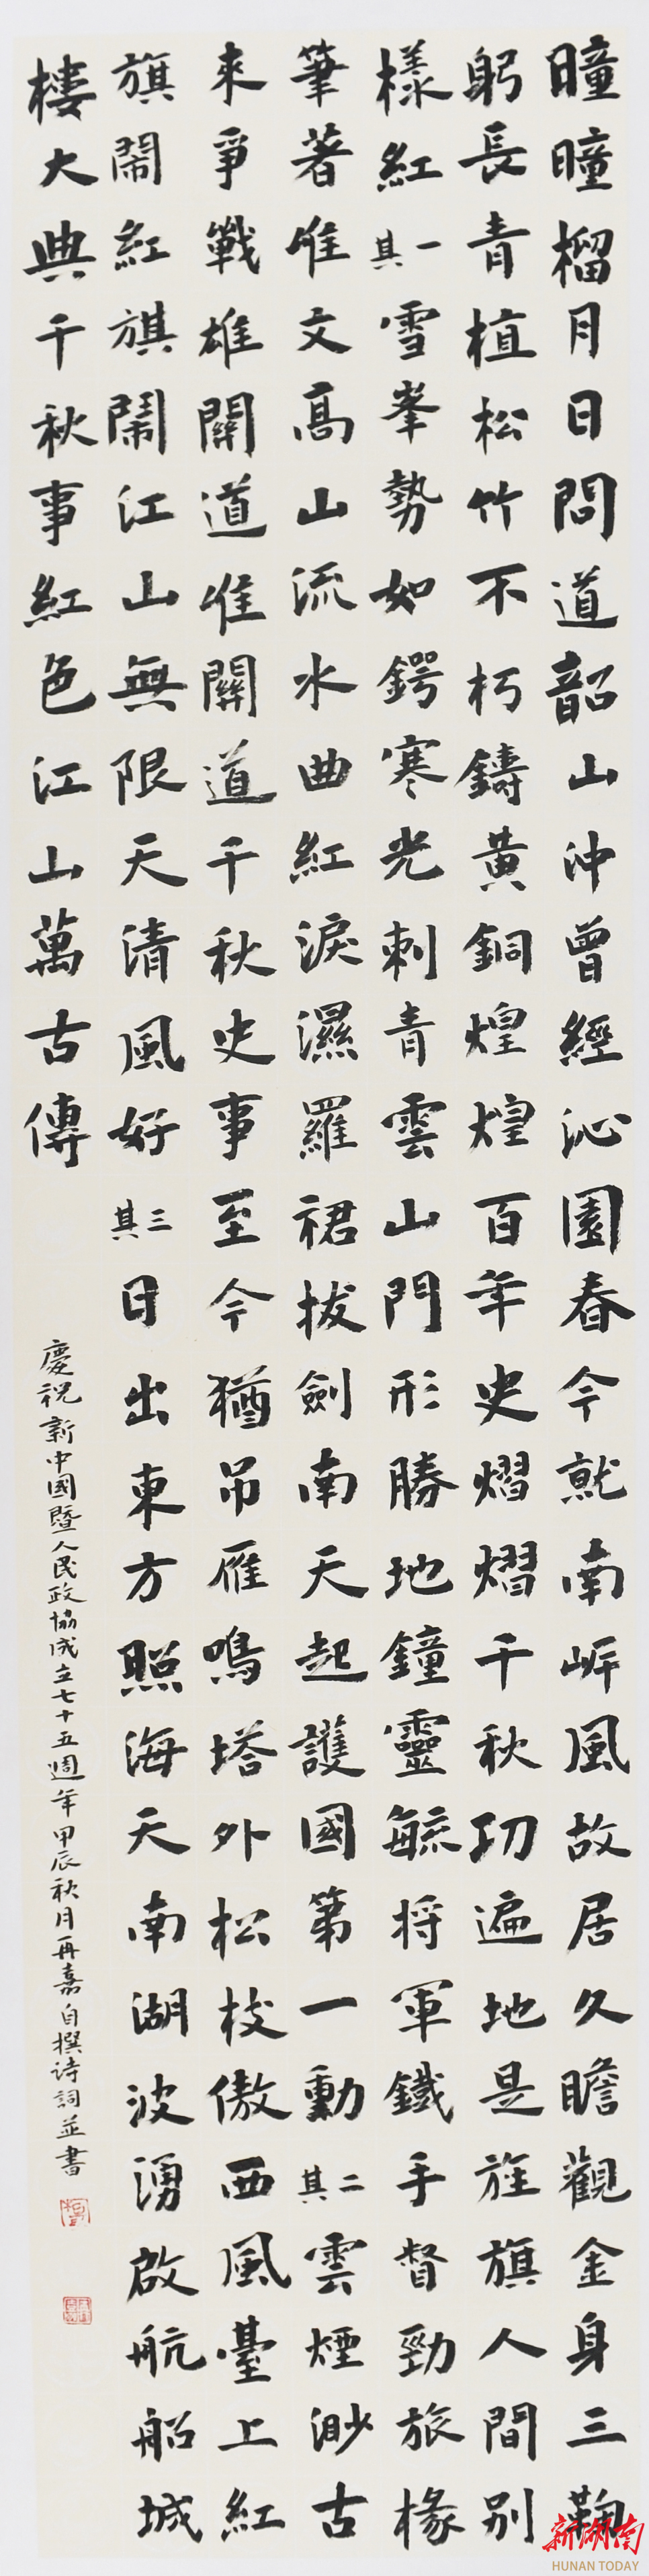 曈曈榴月日問道韶山沖曾經沁園春今就南嶽風故居久瞻觀金身三鞠
躬長青植松竹不朽鑄黃銅煌煌百年史熠熠千秋功遍地是旌旗人間别
樣紅其一雪峯勢如鍔寒光刺青雲山門形勝地鐘靈毓将軍鐵手督勁旅椽
筆著雄文高山流水曲紅淚濕羅裙拔劍南天起護國第一勳其二雲煙渺古
來爭戰雄關道雄關道千秋史事至今猶吊雁鳴塔外松枝傲西風臺上紅
旗鬧紅旗鬧江山無限天清風好其三日出東方照海天南湖波湧啟航船城
樓大典千秋事紅色江山萬古傳
慶祝新中國暨人民政協成立七十五週年甲辰秋月再嘉自撰诗詞並書
新湖南
HUNAN TODAY